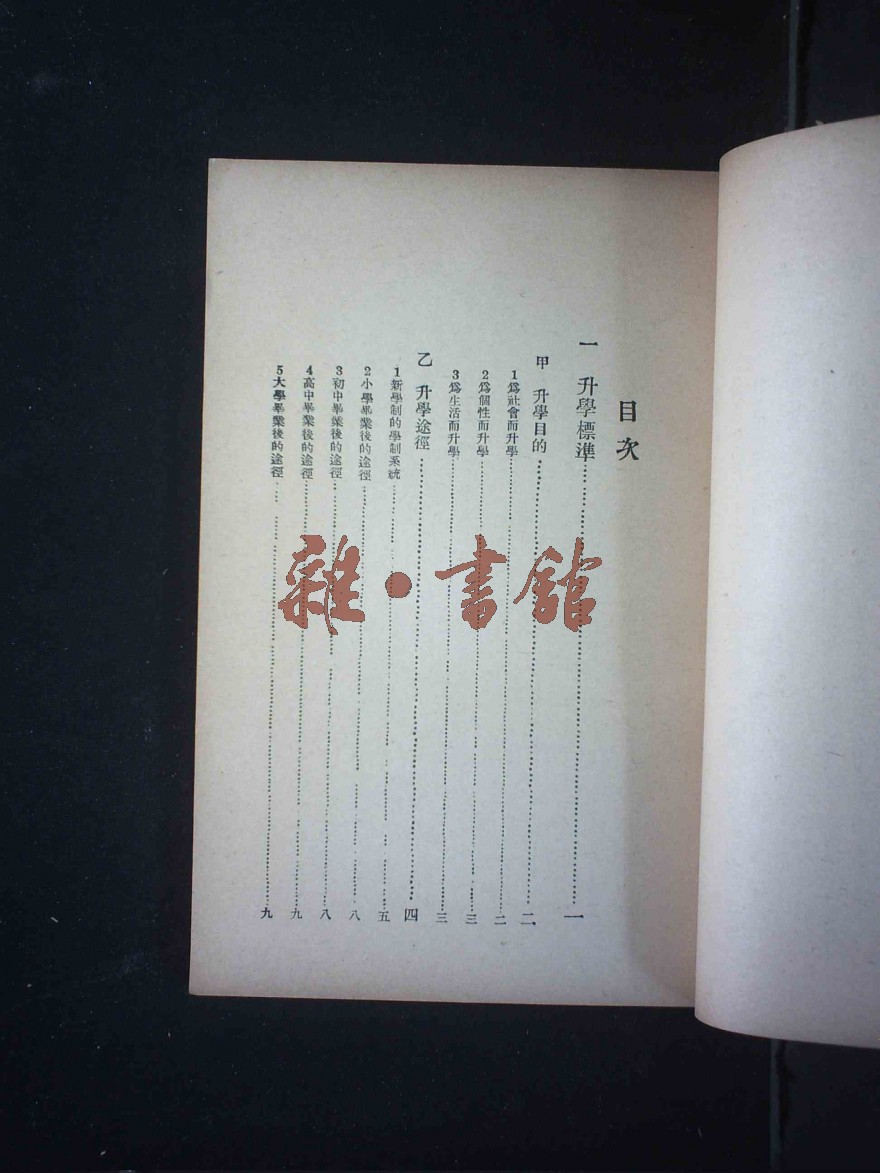 目次
一 升學標準……一
甲 升學目的……二
1爲社會而升學……二
2爲個性而升學……三
3爲生活而升學……三
乙 升學途徑……四
1新學制的學制系統……五
2小學畢業後的途徑……八
3初中畢業後的途徑……八
4高中畢業後的途徑……九
5大學畢業後的途徑……九
雜·書館